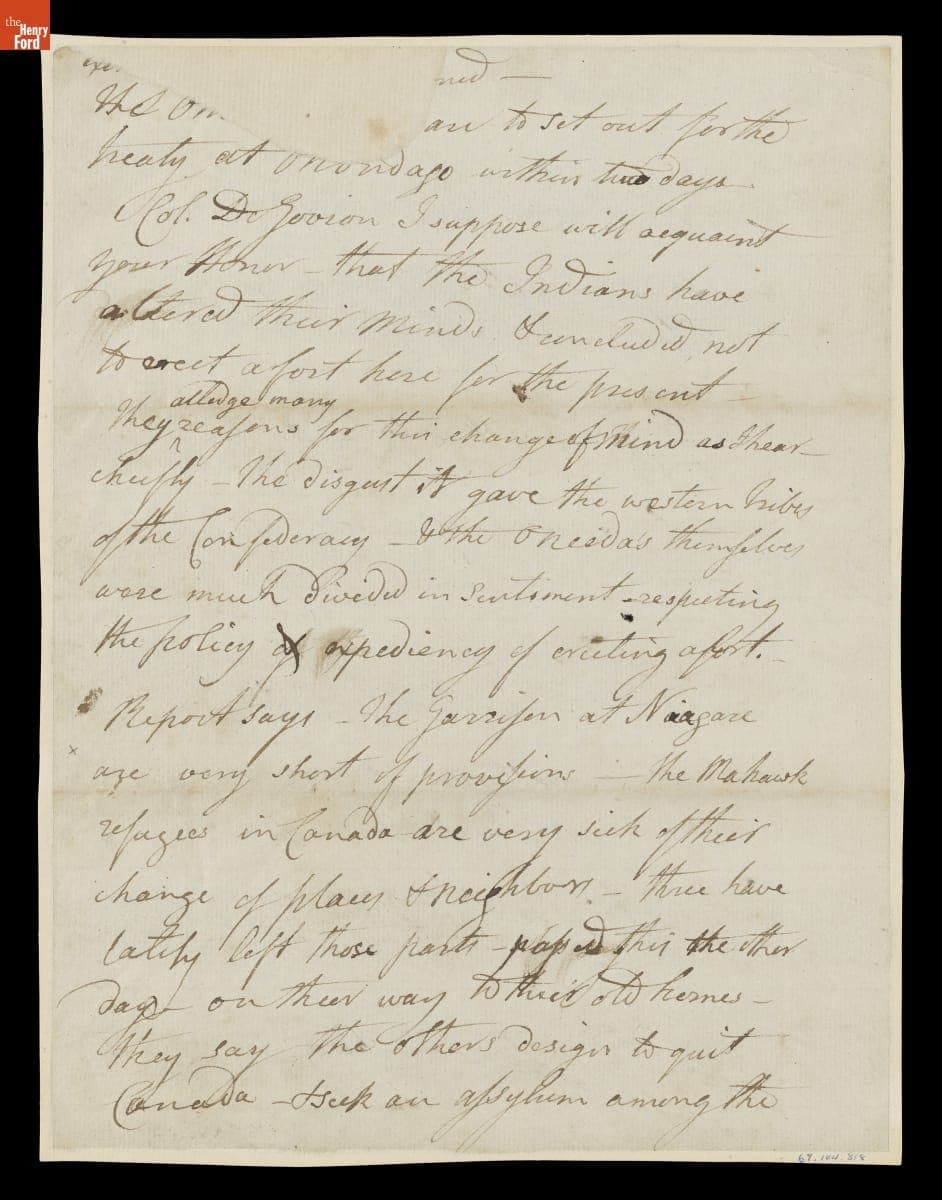 the Henry Ford
ned —
The On are to set out for the
treaty at Onondago within two days.
Col. De Govion I suppose will acquaint
your Honor – that the Indians have
altered their minds & concluded not
to erect a fort here for the present –
alledge many
They ^ reasons for this change of Mind as I hear –
chiefly – the disgust it gave the western tribes
of the Confederacy – & the Oneida's themselves
were much divided in sentiment – respecting
the policy & expediency of erecting a fort. –
Report says – the Garrison at Niagare
are very short of provisions — the Mahawk
refugees in Canada are very sick of their
change of places & neighbors – three have
lately left those parts – passed this the other
day – on their way to their old homes –
they say the others design to quit
Canada – & seek an assylum among the
67.144.818